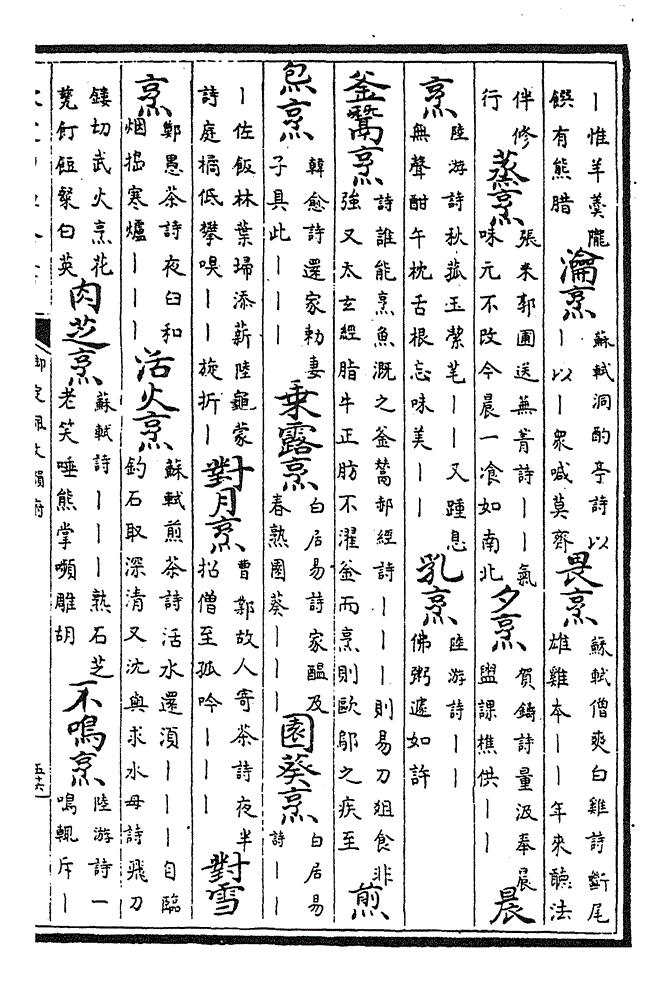 ｜惟羊羹隴
饌有熊腊
瀹烹
蘇軾洞酌亭詩以
｜以｜衆喊莫齊
畏烹
蘇軾僧爽白雞詩斷尾
雄雞本｜｜年來聽法
伴修
行
蒸烹
張耒郭圃送蕪菁詩｜｜氣
味元不改今晨一飡如南北
夕烹
賀鑄詩量汲奉晨
盥課樵供｜｜
晨
烹
陸游詩秋菰玉潔芼｜｜又踵息
無聲酣午枕舌根忘味美｜｜
乳烹
陸游詩｜｜
佛粥遽如許
釜鬵烹
詩誰能烹魚溉之釜鬵郝經詩｜｜｜則易刀俎食非
強又太玄經脂牛正肪不濯釜而烹則歐鄔之疾至
煎
炰烹
韓愈詩還家勅妻
子具此｜｜｜
乗露烹
白居易詩家醖及
春熟園葵｜｜｜
園葵烹
白居易
詩｜｜
｜佐飯林葉掃添薪陸龜蒙
詩庭橘低攀嗅｜｜旋折｜
對月烹
曹鄴故人寄茶詩夜半
招僧至孤吟｜｜｜
對雪
烹
鄭愚茶詩夜臼和
烟搗寒爐｜｜｜
活火烹
蘇軾煎茶詩活水還湏｜｜｜自臨
釣石取深清又沈與求水母詩飛刀
鏤切武火烹花
甆飣餖粲白英
肉芝烹
蘇軾詩｜｜｜熟石芝
老笑唾熊掌嚬雕胡
不鳴烹
陸游詩一
鳴輒斥｜
御定佩文韻府